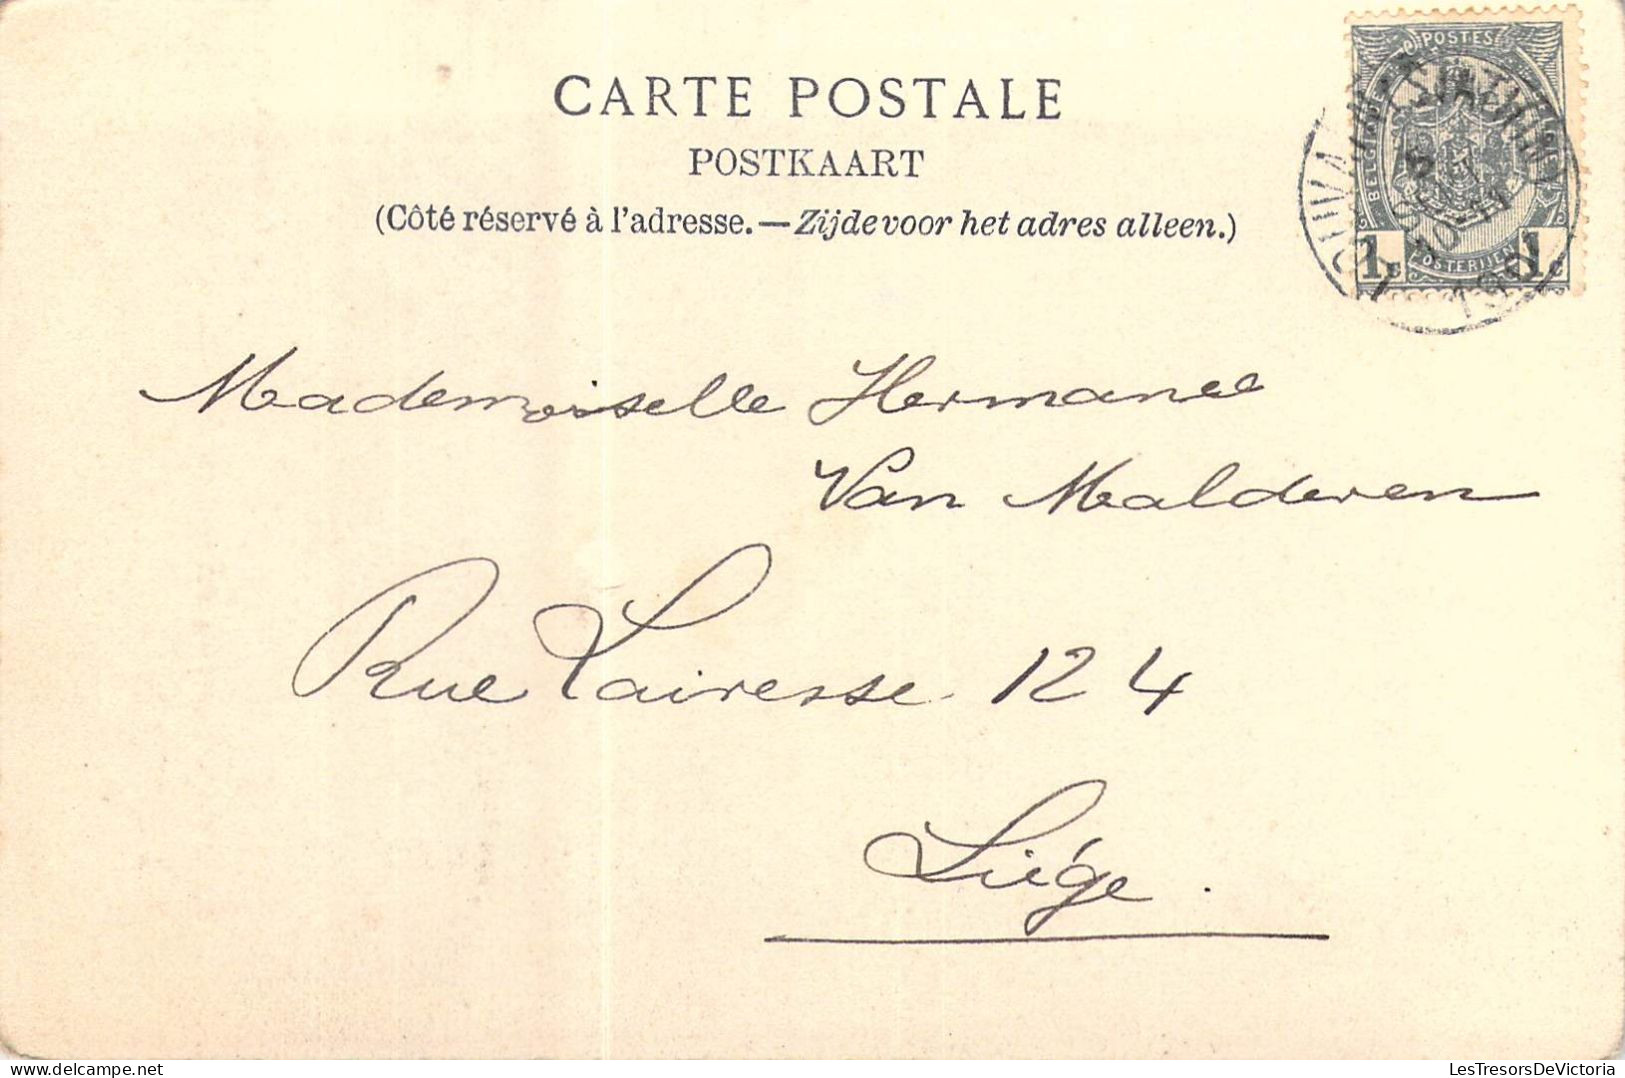 CARTE POSTALE
POSTKAART
(Côté réservé à l'adresse.—Zijde voor het adres alleen.)
POSTES
1c 1c
Mademoiselle Hermance
Van Malderen
Rue Lairesse 124
Liége.
LesTresorsDeVictoria